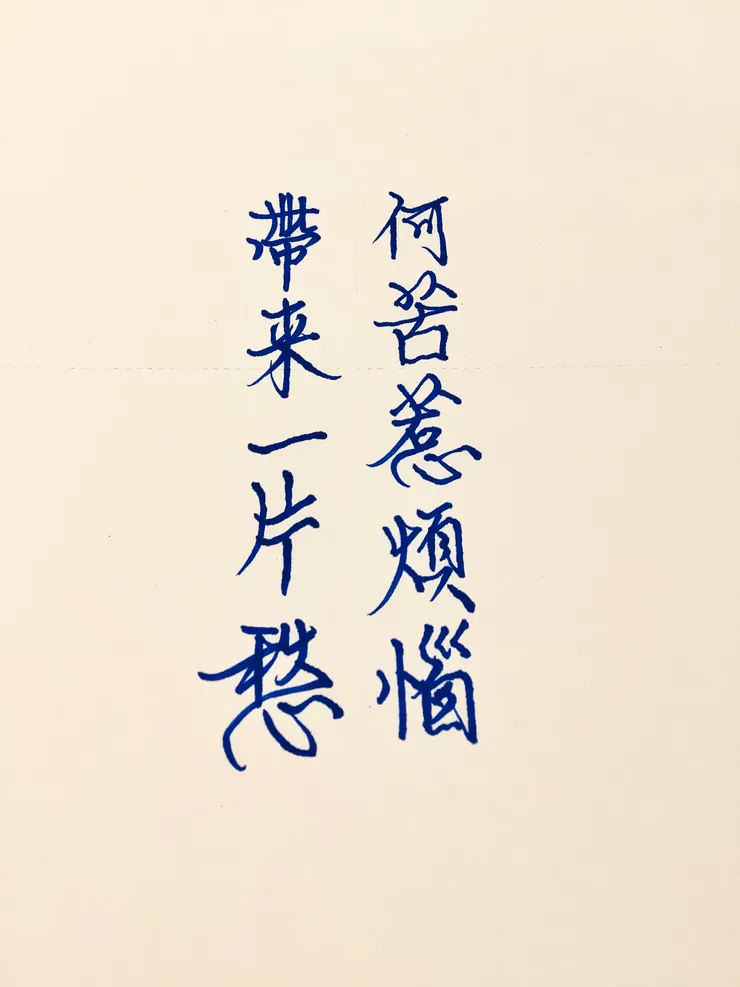 何苦惹煩惱
帶来一片愁